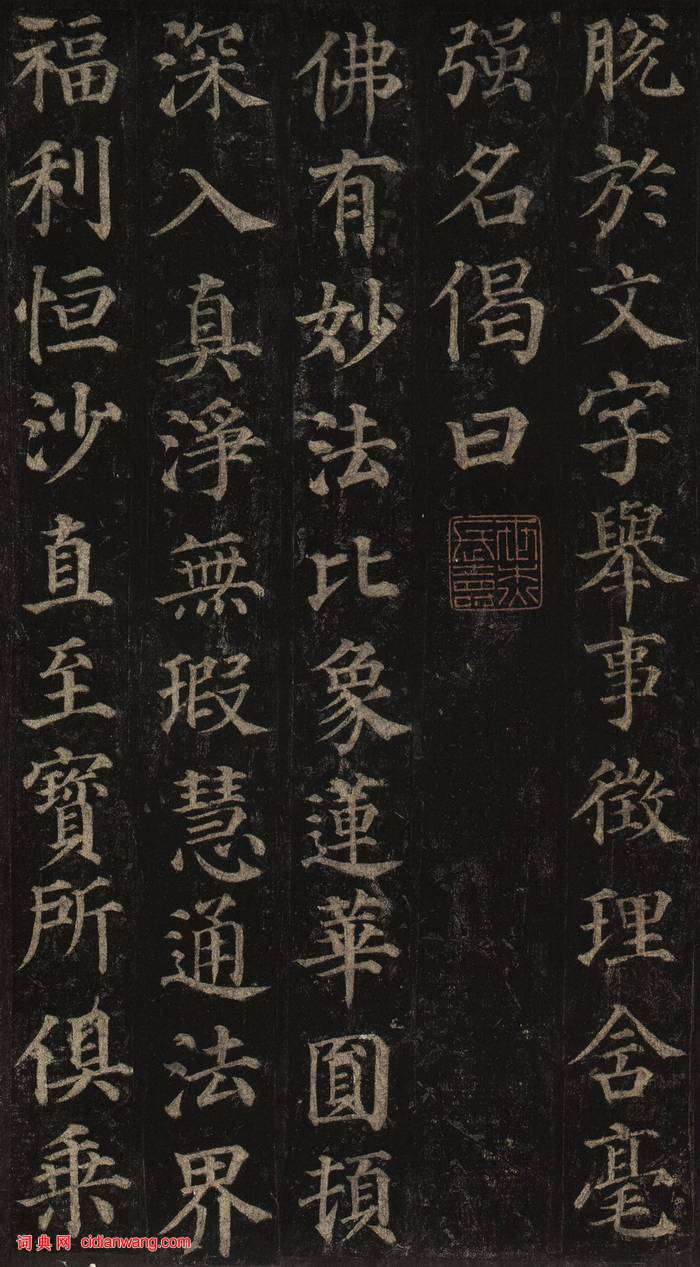 脱於文字舉事徵理含毫
强名偈曰
佛有妙法比象蓮華圓頓
深入真淨無瑕慧通法界
福利恒沙直至寶所俱乘
词典网 cidianwang.com